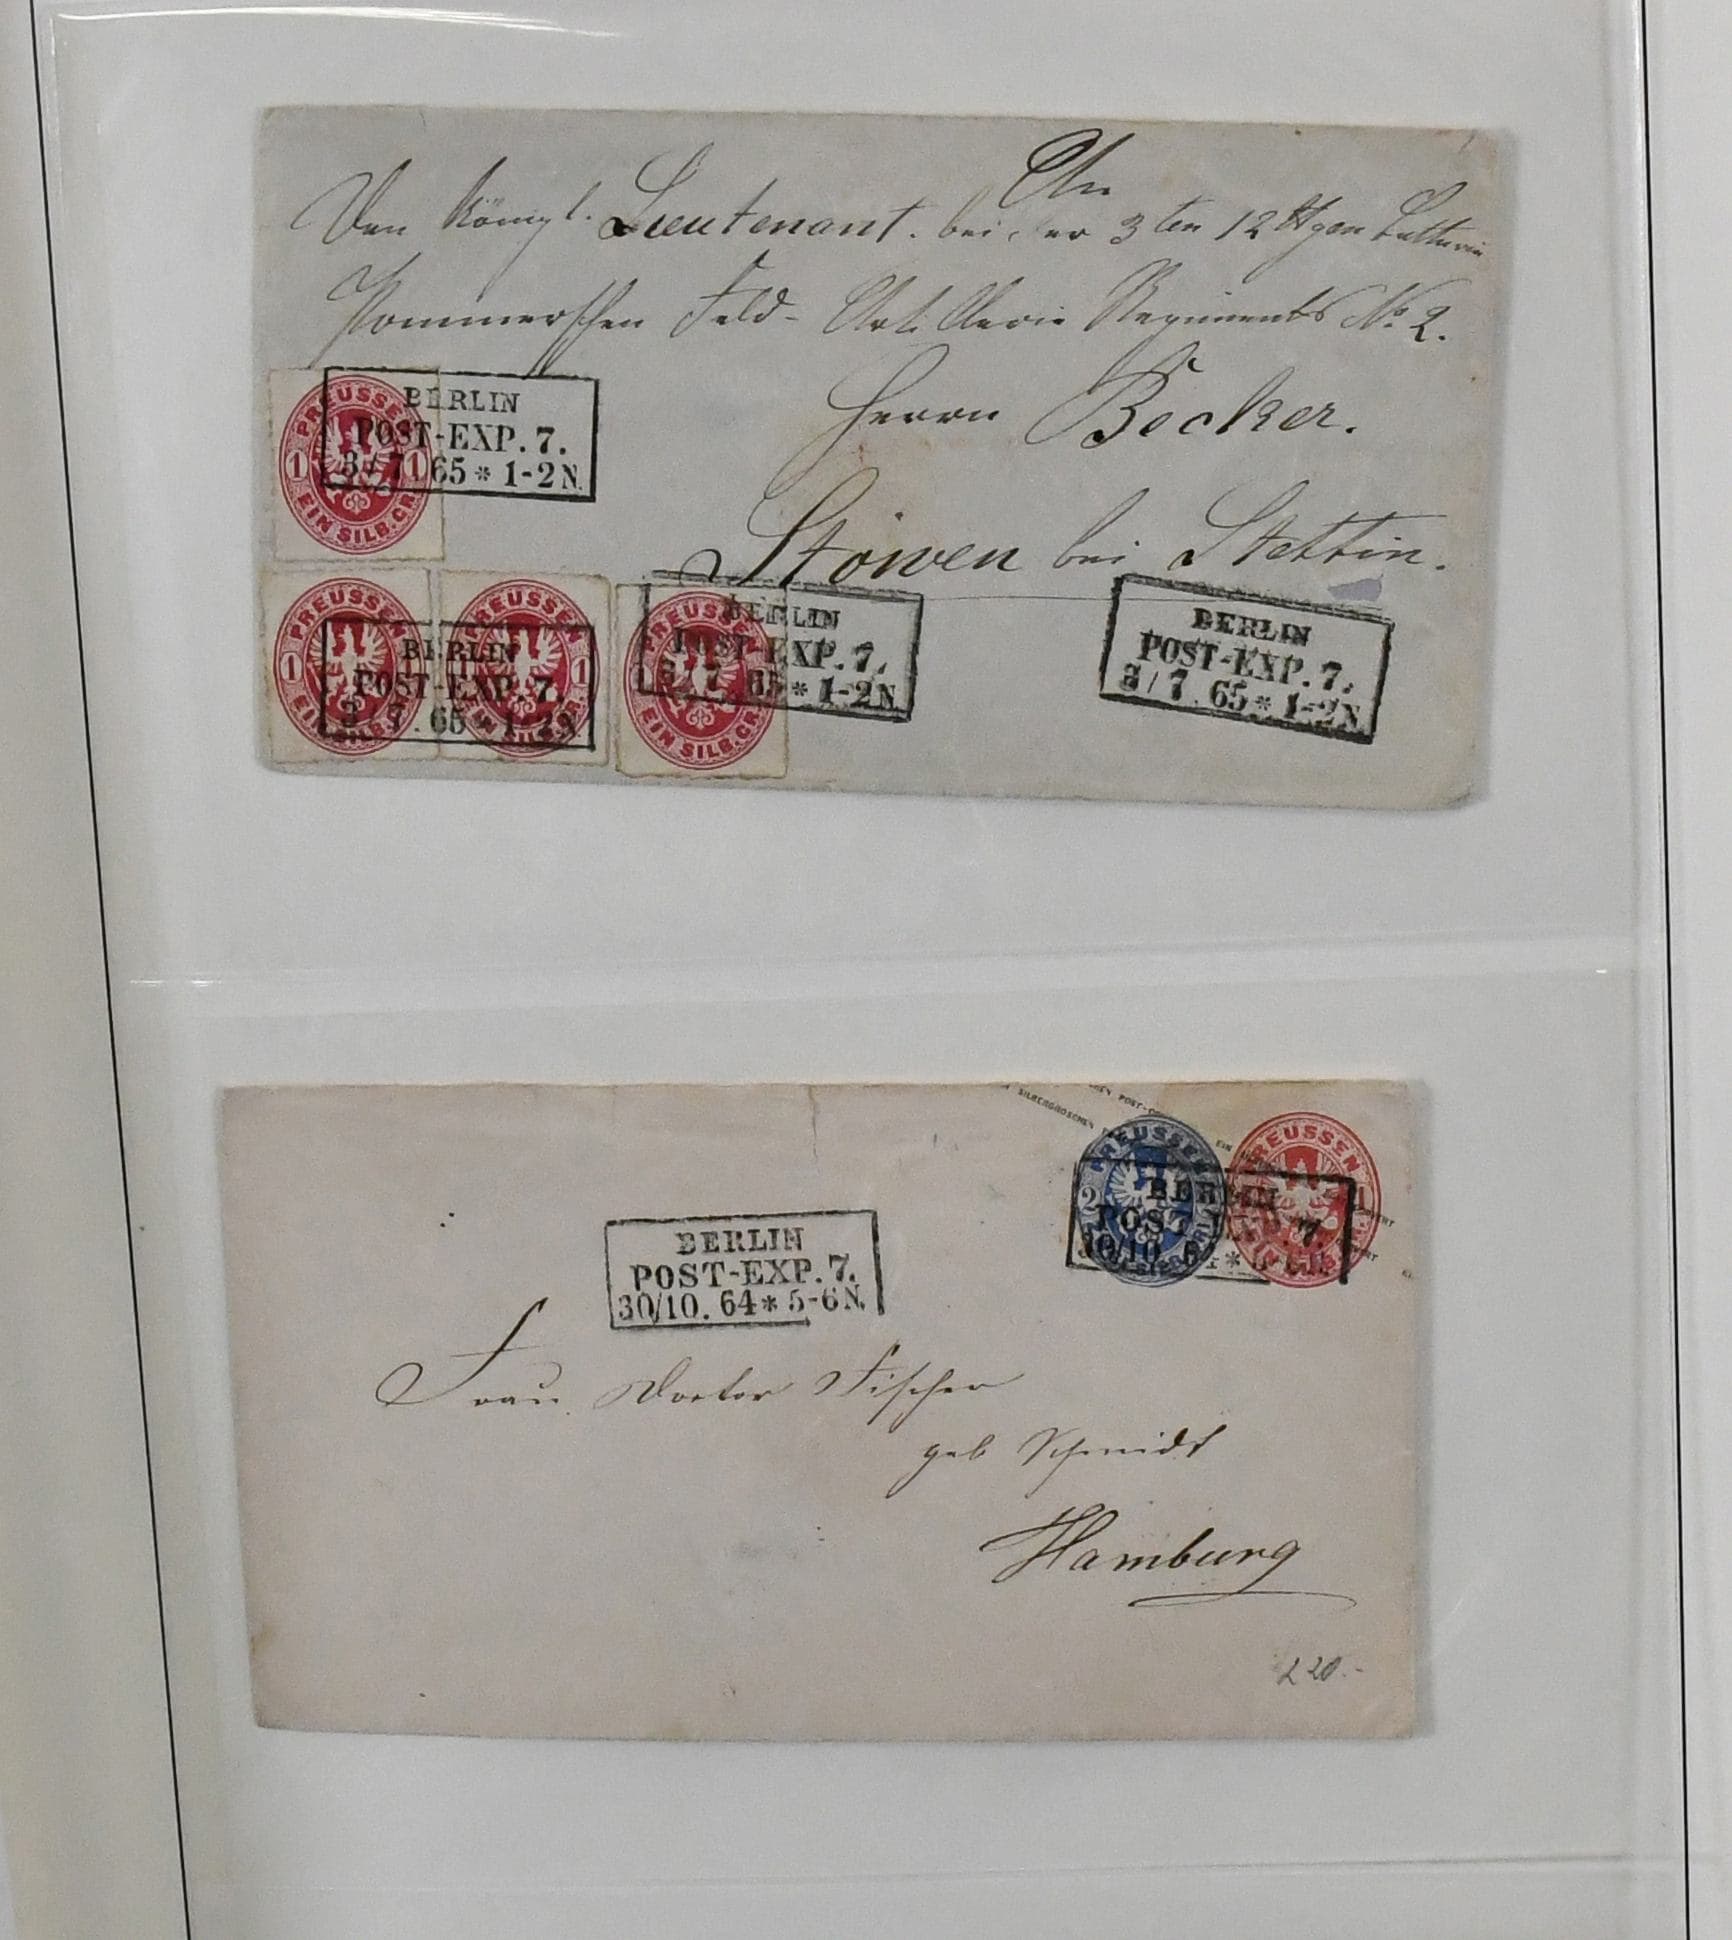 An
Den Königl. Lieutenant. bei der 3ten 12 ℔gen Batterie
Pommerschen Feld- Artillerie Regiments No 2.
Herrn Becker.
Stöwen bei Stettin.
PREUSSEN
1 1
EIN SILB.GR.
BERLIN
POST-EXP. 7.
3/7. 65 * 1-2 N.
PREUSSEN
1
PREUSSEN
1
BERLIN
POST-EXP. 7.
3/7. 65 * 1-2N
PREUSSEN
EIN SILB.GR.
BERLIN
POST-EXP. 7.
3/7. 65 * 1-2N
BERLIN
POST-EXP. 7.
3/7. 65 * 1-2N
SILBERGROSCHEN
POST-
EIN
PREUSSEN
2
PREUSSEN
1
BERLIN
POST 7.
30/10. 64 *
BERLIN
POST-EXP. 7.
30/10. 64 * 5-6 N.
Frau Doctor Fischer
geb Schmidt
Hamburg
220.-